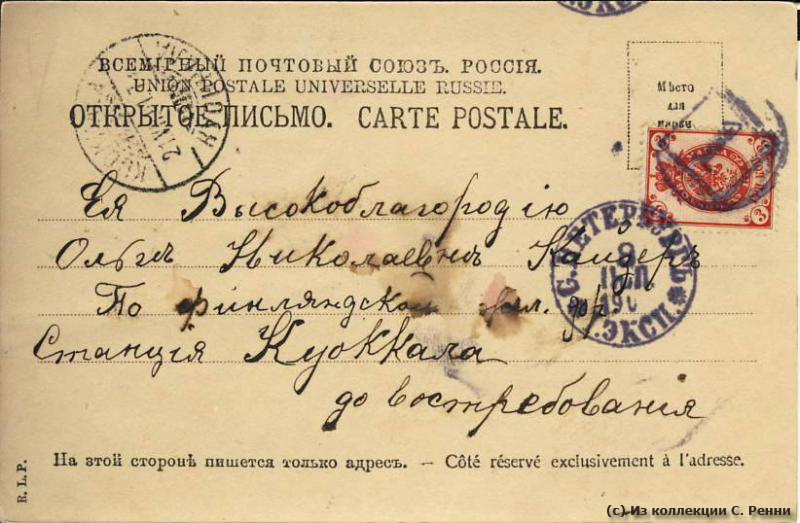 ВСЕМІРНЫЙ ПОЧТОВЫЙ СОЮЗЪ. РОССІЯ.
UNION POSTALE UNIVERSELLE RUSSIE.
ОТКРЫТОЕ ПИСЬМО. CARTE POSTALE.
Мѣсто
для
марки
Ея Высокоблагородію
Ольгѣ Николаевнѣ Кайдеръ
По финляндской жел. дор.
Станція Куоккала
до востребованія
С.ПЕТЕРБУРГЪ
ЭКСП.
3
3
На этой сторонѣ пишется только адресъ. — Côté réservé exclusivement à l'adresse.
R. L. P.
(c) Из коллекции С. Ренни